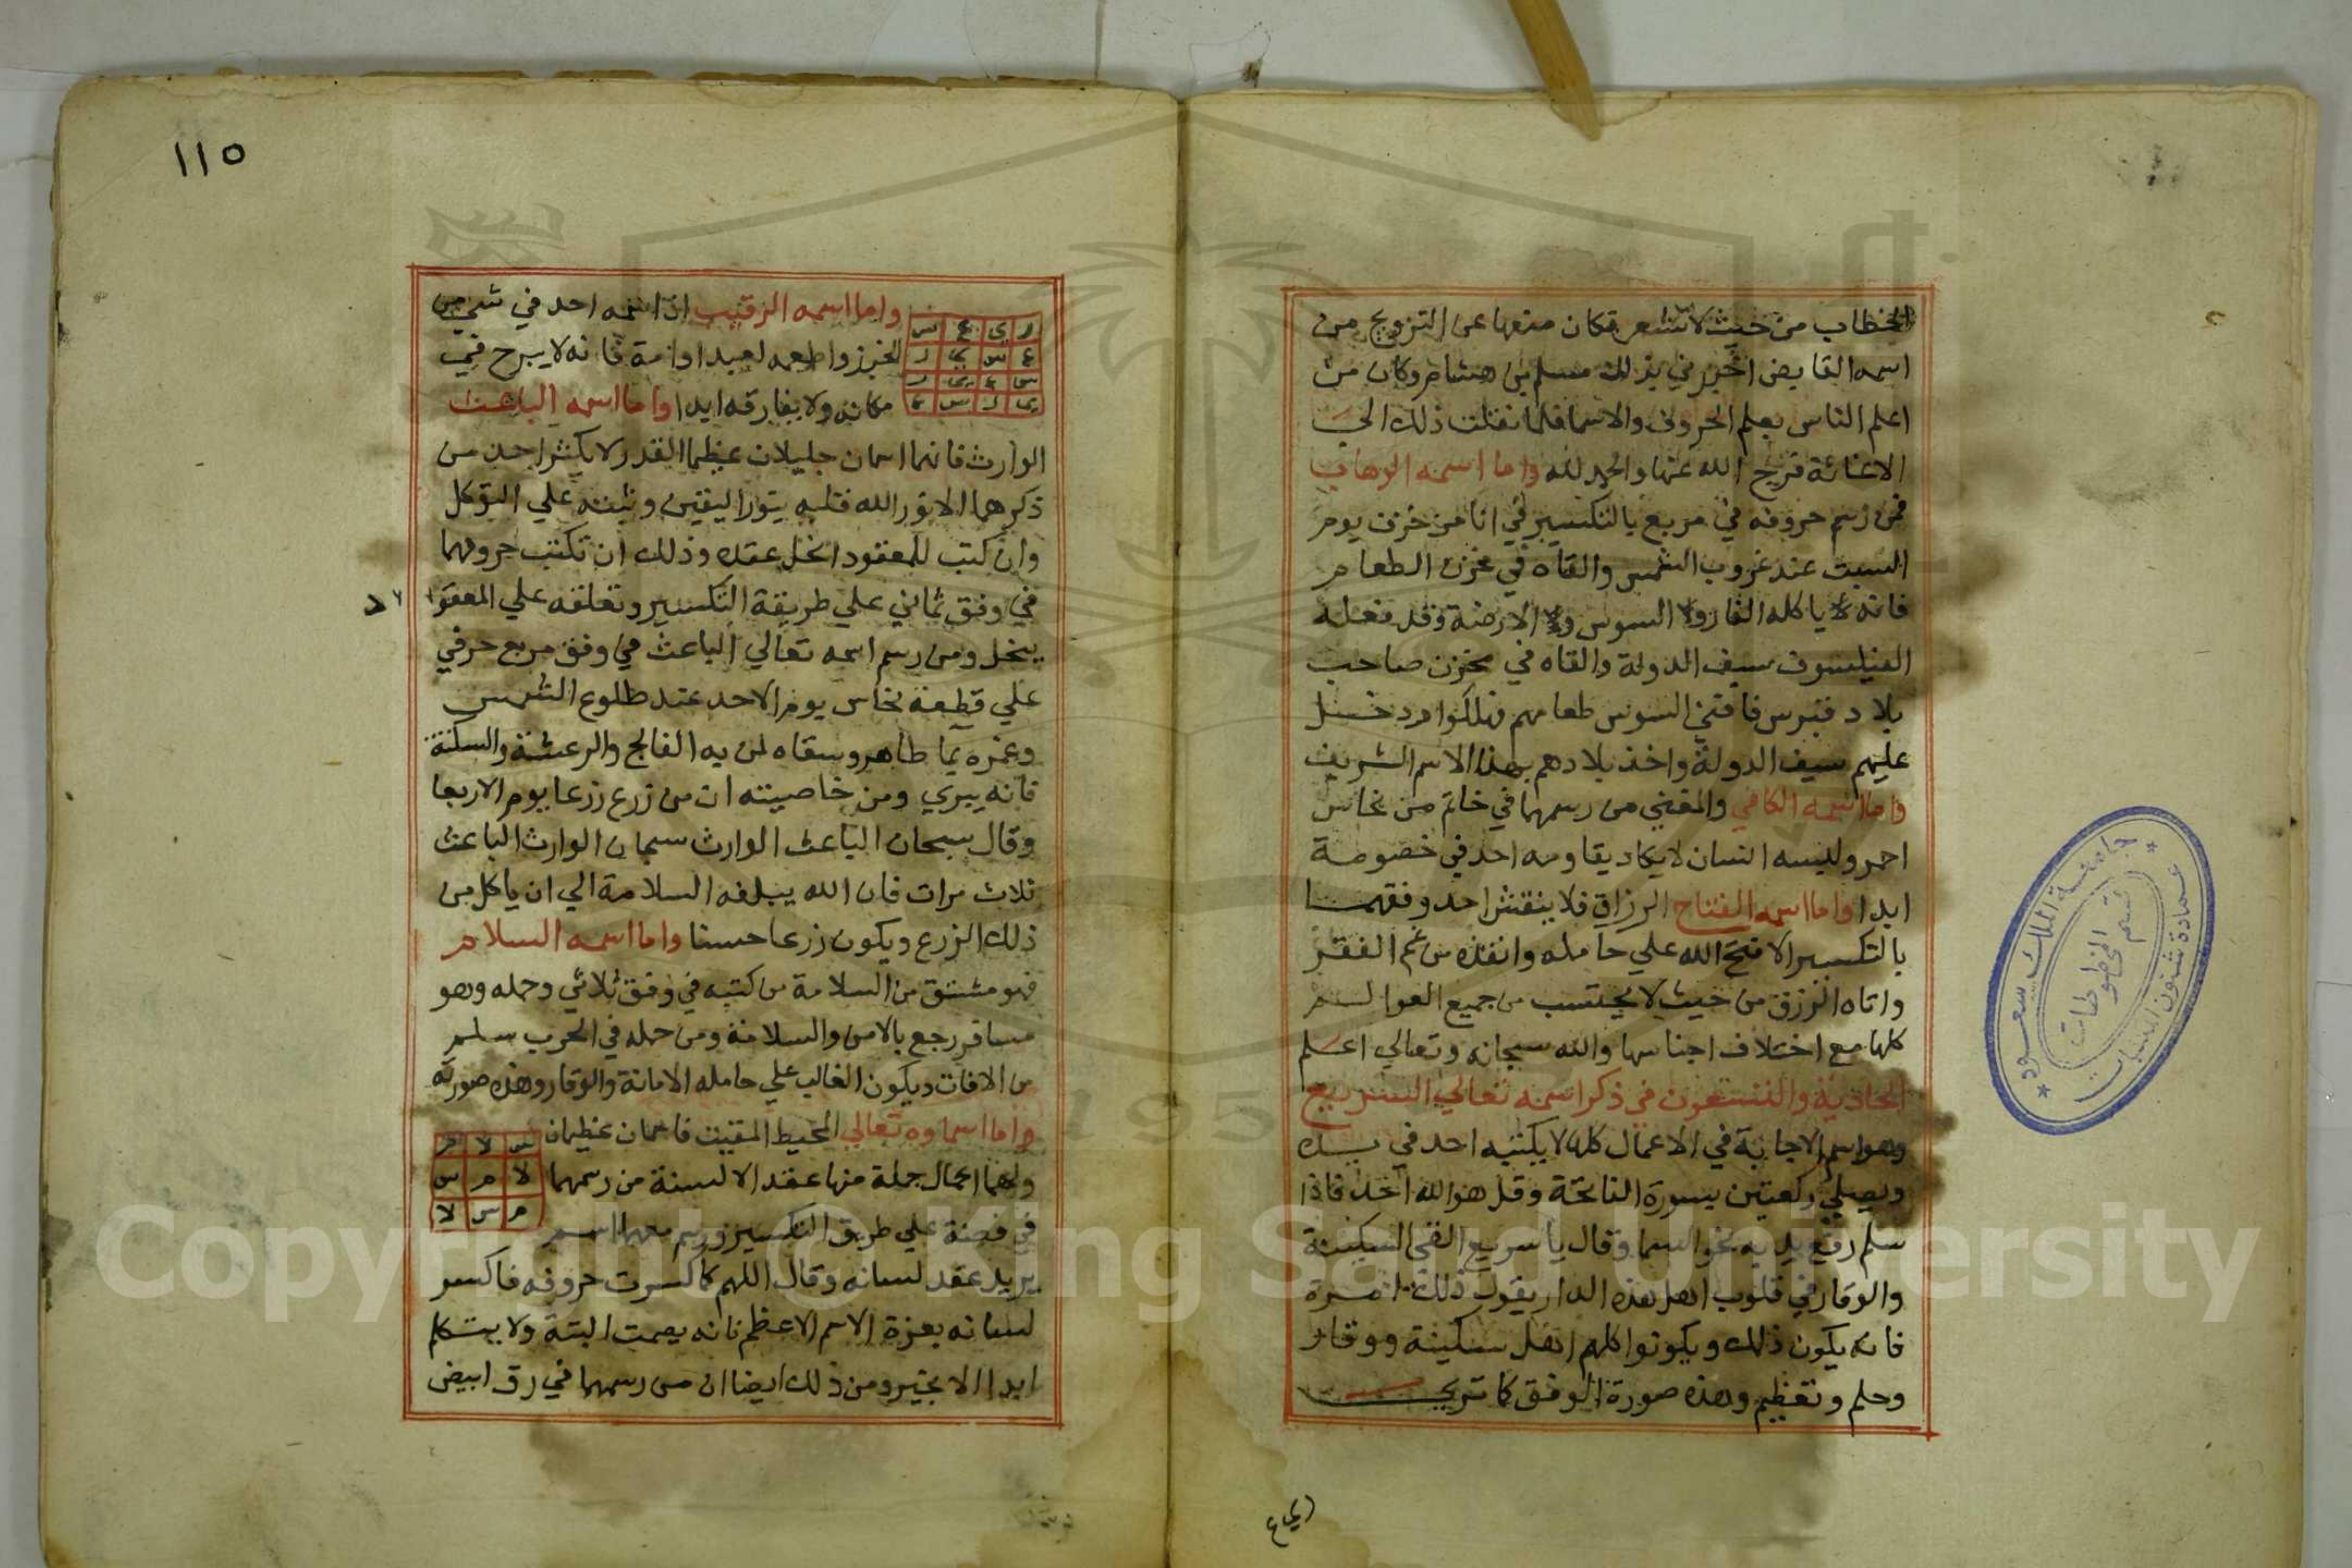 الخطاب من حيث لا تشعر فكان منعها عن التزويج من
اسمه القابض اخبرني بذلك مسلم بن هشام وكان من
اعلم الناس بعلم الحروف والاسما فلما نقلت ذلك الي
الاغاثة فرج الله عنها والحمد لله واما اسمه الوهاب
فمن رسم حروفه في مربع بالتكسير في انا من خزف يوم
السبت عند غروب الشمس والقاه في مخزن الطعام
فانه لا ياكله الفار ولا السوس ولا الارضة وقد فعله
الفيلسوف سيف الدولة والقاه في مخزن صاحب
بلاد قبرس فافني السوس طعامهم فهلكوا ودخل
عليهم سيف الدولة واخذ بلادهم بهذا الاسم الشريف
واما اسمه الكافي والمغني من رسمهما في خاتم من نحاس
احمر ولبسه انسان لا يكاد يقاومه احد في خصومة
ابدا واما اسمه الفتاح الرزاق فلا ينقش احد وفقهما
بالتكسير الا فتح الله علي حامله وانقذه من غم الفقر
واتاه الرزق من حيث لا يحتسب من جميع العوالم
كلها مع اختلاف اجناسها والله سبحانه وتعالي اعلم
الحادية والتسعون في ذكر اسمه تعالي السريع
وهو اسم الاجابة في الاعمال كلها لا يكتبه احد في يده
ويصلي ركعتين بسورة الفاتحة وقل هو الله احد فاذا
سلم رفع يديه نحو السما وقال يا سريع الق السكينة
والوقار في قلوب اهل هذه الدار يقول ذلك مرة
فانه يكون ذلك ويكونوا كلهم اهل سكينة ووقار
وحلم وتعظيم وهذه صورة الوفق كما تري
ر ي ع س
ع س ي ر
س ع ي ر
ي ر س ع
واما اسمه الرقيب اذا رسمه احد في شي من
الخبز واطعمه لعبد او امة فانه لا يبرح في
مكانه ولا يفارقه ابدا واما اسمه الباعث
الوارث فانهما اسمان جليلان عظيما القدر لا يكثر احد من
ذكرهما الا نور الله قلبه بنور اليقين وثبته علي التوكل
وان كتب للمعقود انحل عقده وذلك ان تكتب حروفهما
في وفق ثماني علي طريقة التكسير وتعلقه علي المعقو
د
ينحل ومن رسم اسمه تعالي الباعث في وفق مربع حرفي
علي قطعة نحاس يوم الاحد عند طلوع الشمس
وغمره بما طاهر وسقاه لمن به الفالج والرعشة والسكتة
فانه يبري ومن خاصيته ان من زرع زرعا يوم الاربعا
وقال سبحان الباعث الوارث سبحان الوارث الباعث
ثلاث مرات فان الله يبلغه السلامة الي ان ياكل من
ذلك الزرع ويكون زرعا حسنا واما اسمه السلام
فهو مشتق من السلامة من كتبه في وفق ثلاثي وحمله وهو
مسافر رجع بالامن والسلامة ومن حمله في الحرب سلم
من الافات ويكون الغالب علي حامله الامانة والوقار وهذه صورته
واما اسماوه تعالي المحيط المقيت فاسمان عظيمان
ولهما اعمال جملة منها عقد الالسنة من رسمهما
في فضة علي طريق التكسير ورسم معهما اسم
س لا م
لا م س
م س لا
يريد عقد لسانه وقال اللهم كما كسرت حروفه فاكسر
لسانه بعزة الاسم الاعظم فانه يصمت البتة ولا يتكلم
ابدا الا بخير ومن ذلك ايضا ان من رسمهما في رق ابيض
١١٥
جامعة الملك سعود
عمادة شئون المكتبات
قسم المخطوطات
Copyright © King Saud University
195